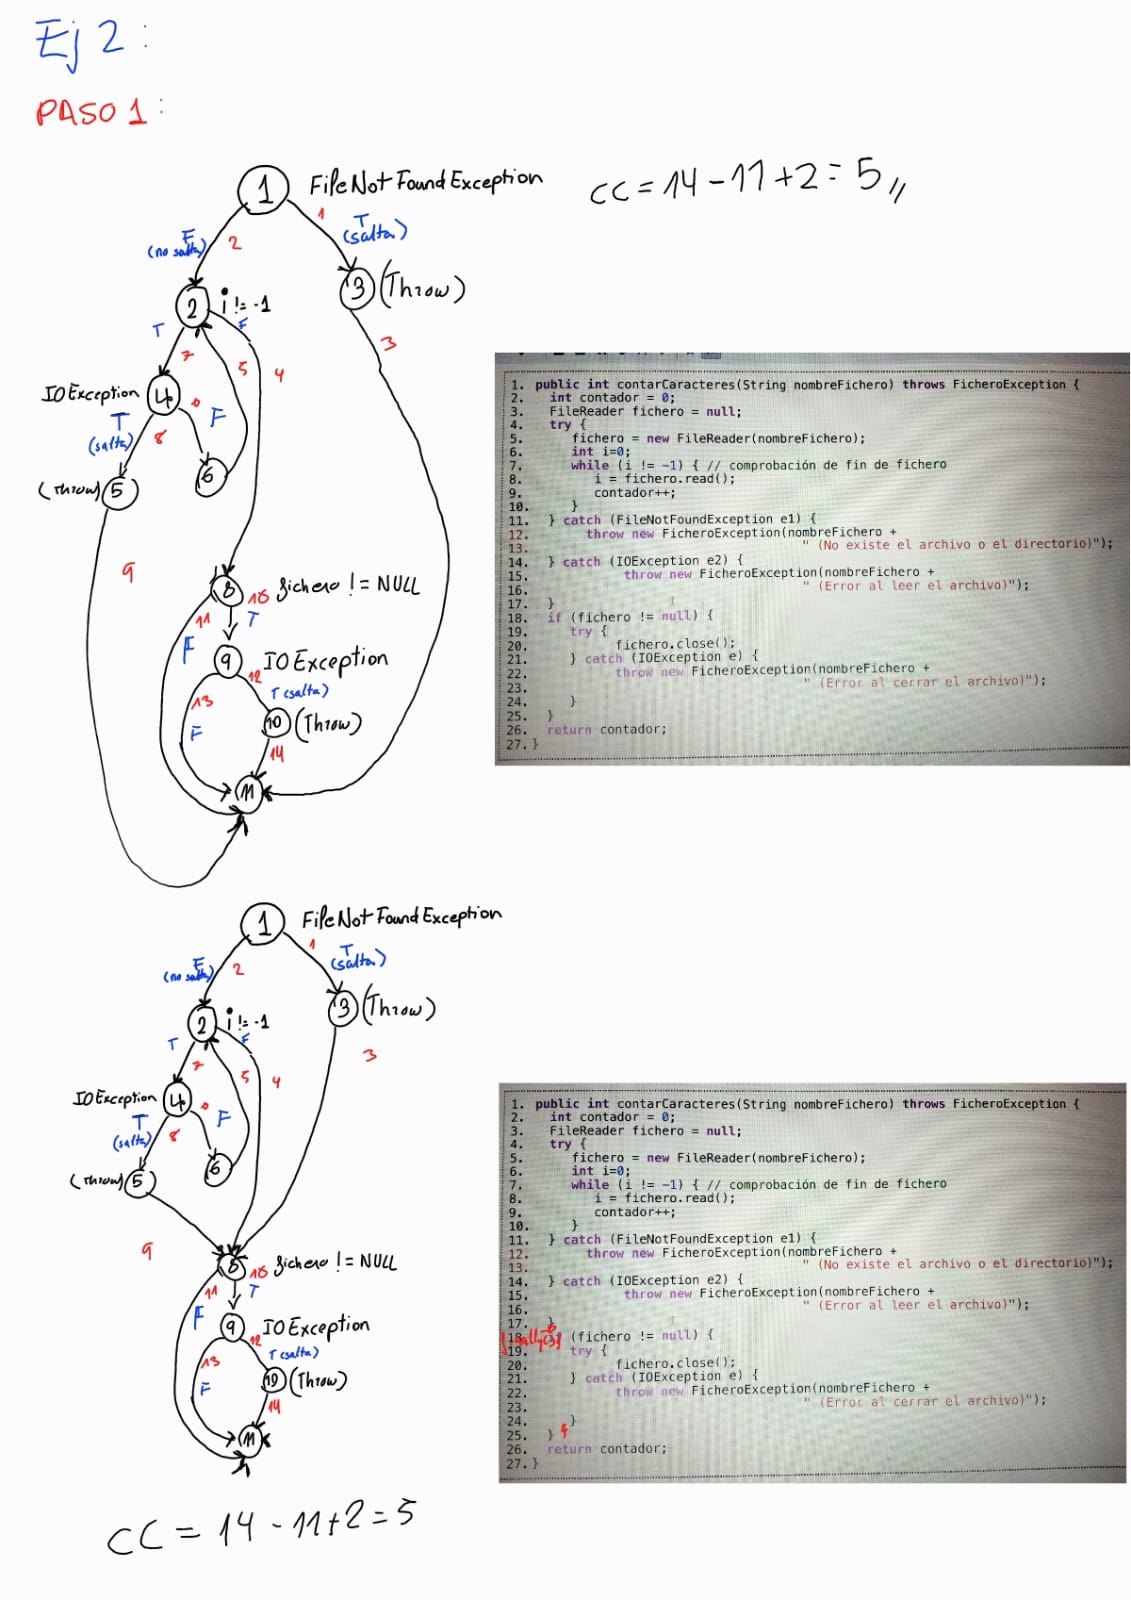 Ej 2 :
PASO 1 :
1 FileNotFoundException
CC = 14 - 11 + 2 = 5 //
1
T
(salta)
F
(no salta)
2
3 (Throw)
2 i != -1
T
F
3
7
5
4
IOException 4
T
(salta)
F
8
6
(Throw) 5
9
8 10 fichero != NULL
11
T
F
9 IOException
12
T (salta)
13
F
10 (Throw)
14
11
1. public int contarCaracteres(String nombreFichero) throws FicheroException {
2. int contador = 0;
3. FileReader fichero = null;
4. try {
5. fichero = new FileReader(nombreFichero);
6. int i=0;
7. while (i != -1) { // comprobación de fin de fichero
8. i = fichero.read();
9. contador++;
10. }
11. } catch (FileNotFoundException e1) {
12. throw new FicheroException(nombreFichero +
13. " (No existe el archivo o el directorio)");
14. } catch (IOException e2) {
15. throw new FicheroException(nombreFichero +
16. " (Error al leer el archivo)");
17. }
18. if (fichero != null) {
19. try {
20. fichero.close();
21. } catch (IOException e) {
22. throw new FicheroException(nombreFichero +
23. " (Error al cerrar el archivo)");
24. }
25. }
26. return contador;
27. }
1 FileNotFoundException
1
T
(salta)
F
(no salta)
2
3 (Throw)
2 i != -1
T
F
3
7
5
4
IOException 4
T
(salta)
F
8
6
(Throw) 5
9
8 10 fichero != NULL
11
T
F
9 IOException
12
T (salta)
13
F
10 (Throw)
14
11
1. public int contarCaracteres(String nombreFichero) throws FicheroException {
2. int contador = 0;
3. FileReader fichero = null;
4. try {
5. fichero = new FileReader(nombreFichero);
6. int i=0;
7. while (i != -1) { // comprobación de fin de fichero
8. i = fichero.read();
9. contador++;
10. }
11. } catch (FileNotFoundException e1) {
12. throw new FicheroException(nombreFichero +
13. " (No existe el archivo o el directorio)");
14. } catch (IOException e2) {
15. throw new FicheroException(nombreFichero +
16. " (Error al leer el archivo)");
17. }
18. (fichero != null) {
19. try {
20. fichero.close();
21. } catch (IOException e) {
22. throw new FicheroException(nombreFichero +
23. " (Error al cerrar el archivo)");
24. }
25. } }
26. return contador;
27. }
CC = 14 - 11 + 2 = 5